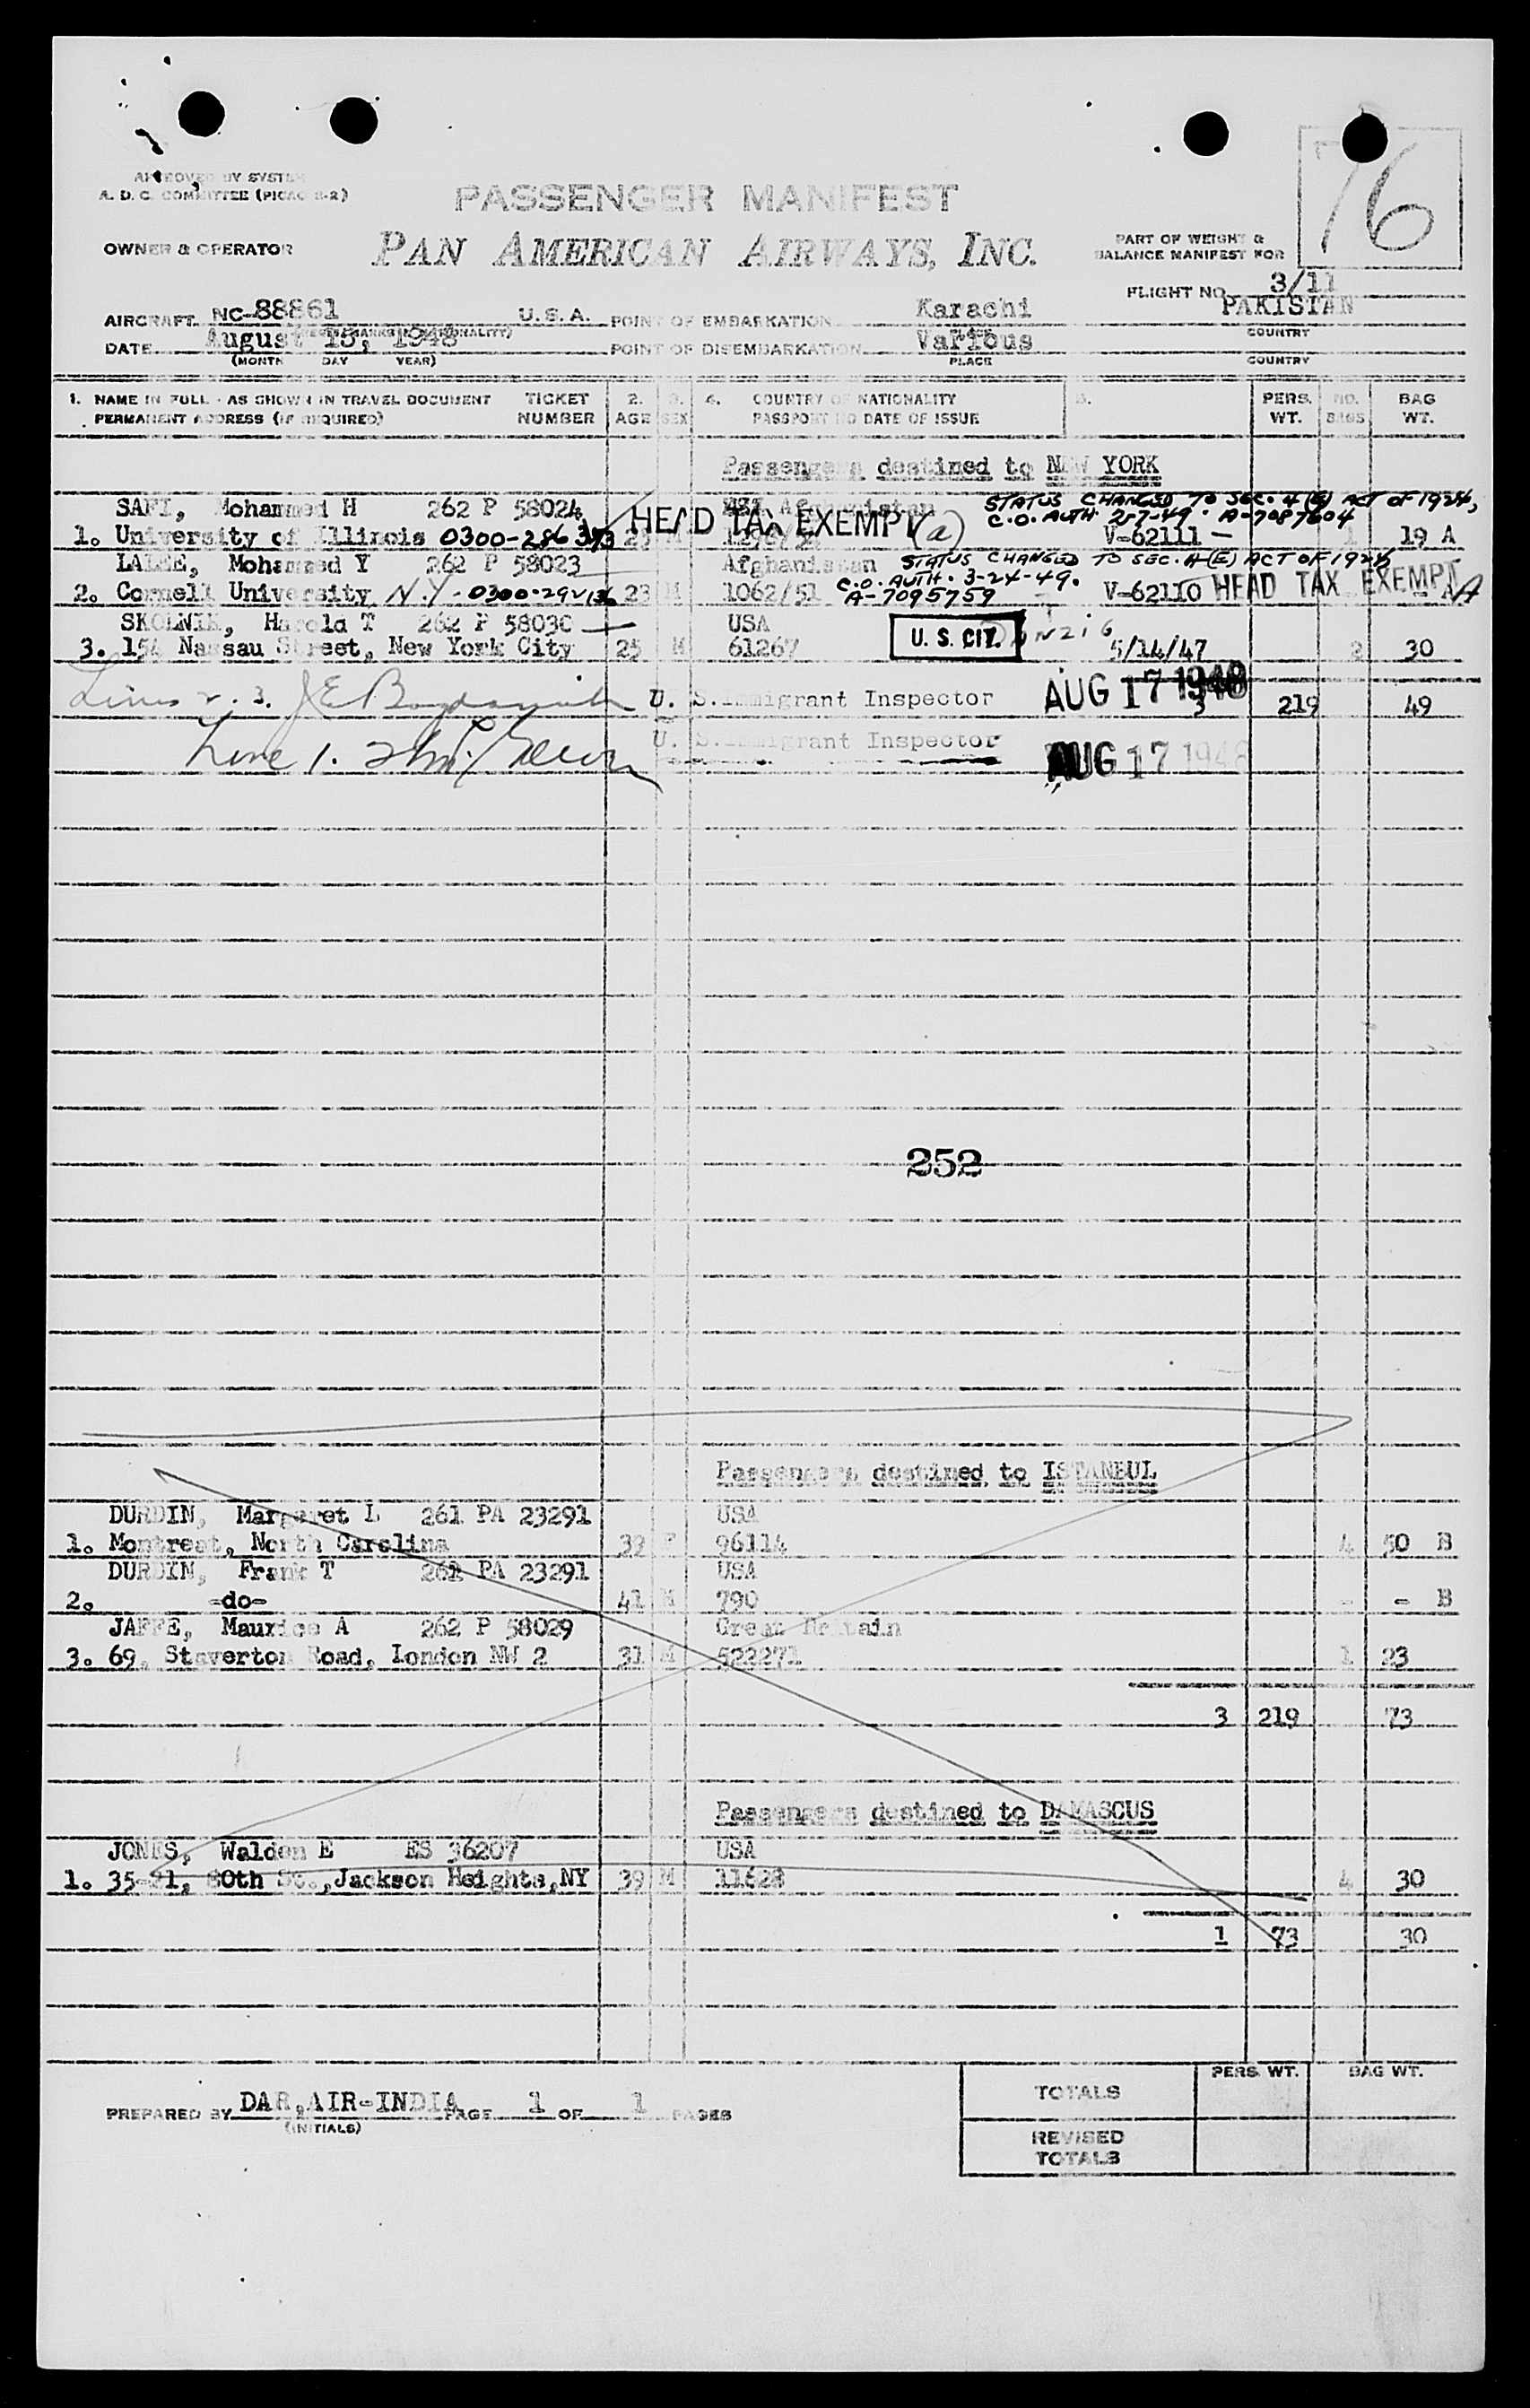 APPROVED BY SYSTEM
A. D. C. COMMITTEE (PICAO S-2)
PASSENGER MANIFEST
OWNER & OPERATOR PAN AMERICAN AIRWAYS, INC.
PART OF WEIGHT &
BALANCE MANIFEST FOR
16
FLIGHT NO. 3/11
AIRCRAFT NC-88861 U.S.A. POINT OF EMBARKATION Karachi PAKISTAN
PLACE COUNTRY
DATE August 15, 1948 POINT OF DISEMBARKATION Various
(MONTH DAY YEAR) PLACE COUNTRY
1. NAME IN FULL - AS SHOWN IN TRAVEL DOCUMENT TICKET 2. 3. 4. COUNTRY OF NATIONALITY 5. PERS. NO. BAG
PERMANENT ADDRESS (IF REQUIRED) NUMBER AGE SEX PASSPORT NO DATE OF ISSUE WT. BAGS WT.
Passengers destined to NEW YORK
SAFI, Mohammed H 262 P 58024 Afghanistan STATUS CHANGED TO SEC. 4 (E) ACT OF 1924,
HEAD TAX EXEMPT (a) C.O. AUTH. 2-7-49. A-7087604
1. University of Illinois 0300-286 373 V-62111 - 1 19 A
LALEE, Mohammed Y 262 P 58023 Afghanistan STATUS CHANGED TO SEC. 4 (E) ACT OF 1924
C.O. AUTH. 3-24-49.
2. Cornell University N.Y. 0300-29 23 M 1062/51 A-7095759 V-62110 HEAD TAX EXEMPT A
SKOLNIK, Harold T 262 P 58030 USA U. S. CIT.
3. 154 Nassau Street, New York City 25 M 61267 5/14/47 2 30
Lines 2. 3. U. S. Immigrant Inspector AUG 17 1948 3 219 49
Line 1. U. S. Immigrant Inspector AUG 17 1948
252
Passengers destined to ISTANBUL
DURDIN, Margaret L 261 PA 23291 USA
1. Montreat, North Carolina 39 F 96114 4 50 B
DURDIN, Frank T 261 PA 23291 USA
2. -do- 41 M 790 - - B
JAFFE, Maurice A 262 P 58029 Great Britain
3. 69, Staverton Road, London NW 2 31 M 522271 1 23
3 219 73
Passengers destined to DAMASCUS
JONES, Waldon E ES 36207 USA
1. 35-21, 80th St., Jackson Heights, NY 39 M 11628 4 30
1 73 30
PERS. WT. BAG WT.
TOTALS
PREPARED BY DAR, AIR-INDIA PAGE 1 OF 1 PAGES
(INITIALS)
REVISED
TOTALS